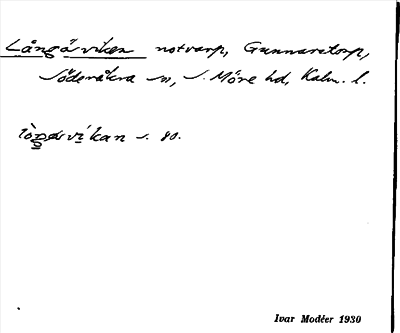 Långåviken notvarp, Gunnarstorp,
Söderåkra sn, S. Möre hd, Kalm. l.
s. 80.
Ivar Modéer 1930